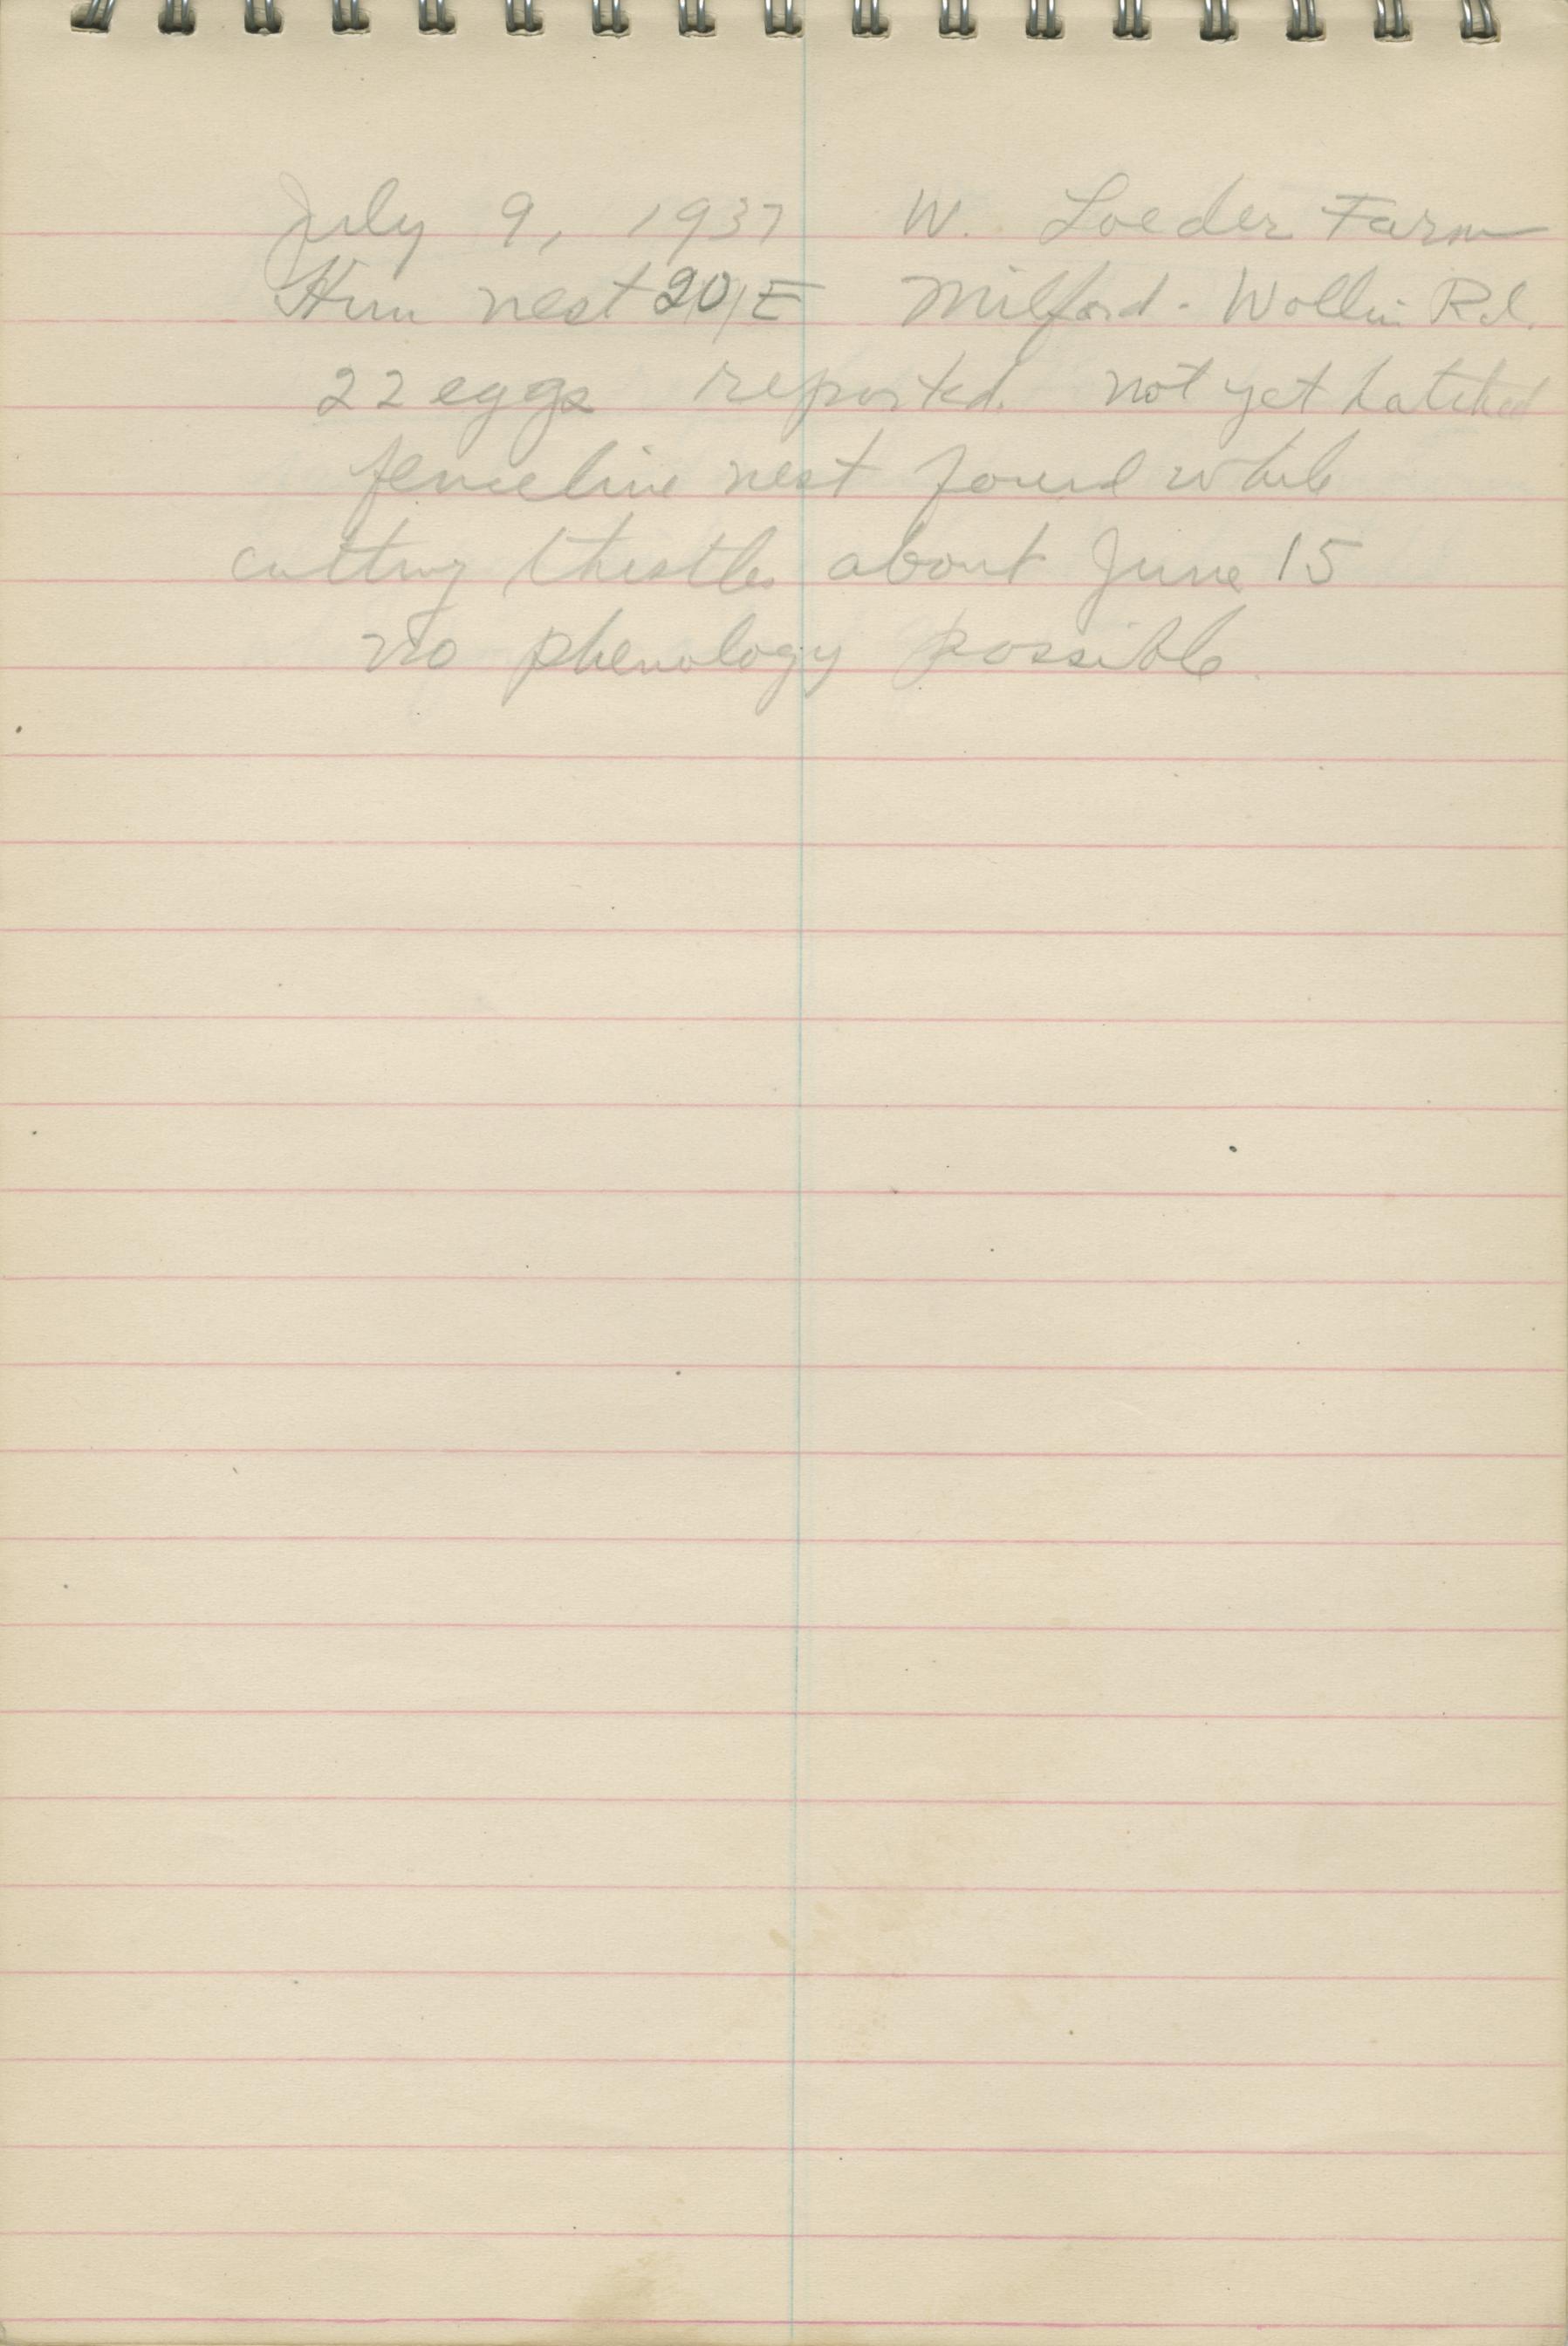 July 9, 1937 W. Loeder Farm
Hun nest 20/E Milford - Wollin Rd.
22 eggs reported. not yet hatched
fenceline nest found while
cutting thistles about June 15
no phenology possible.